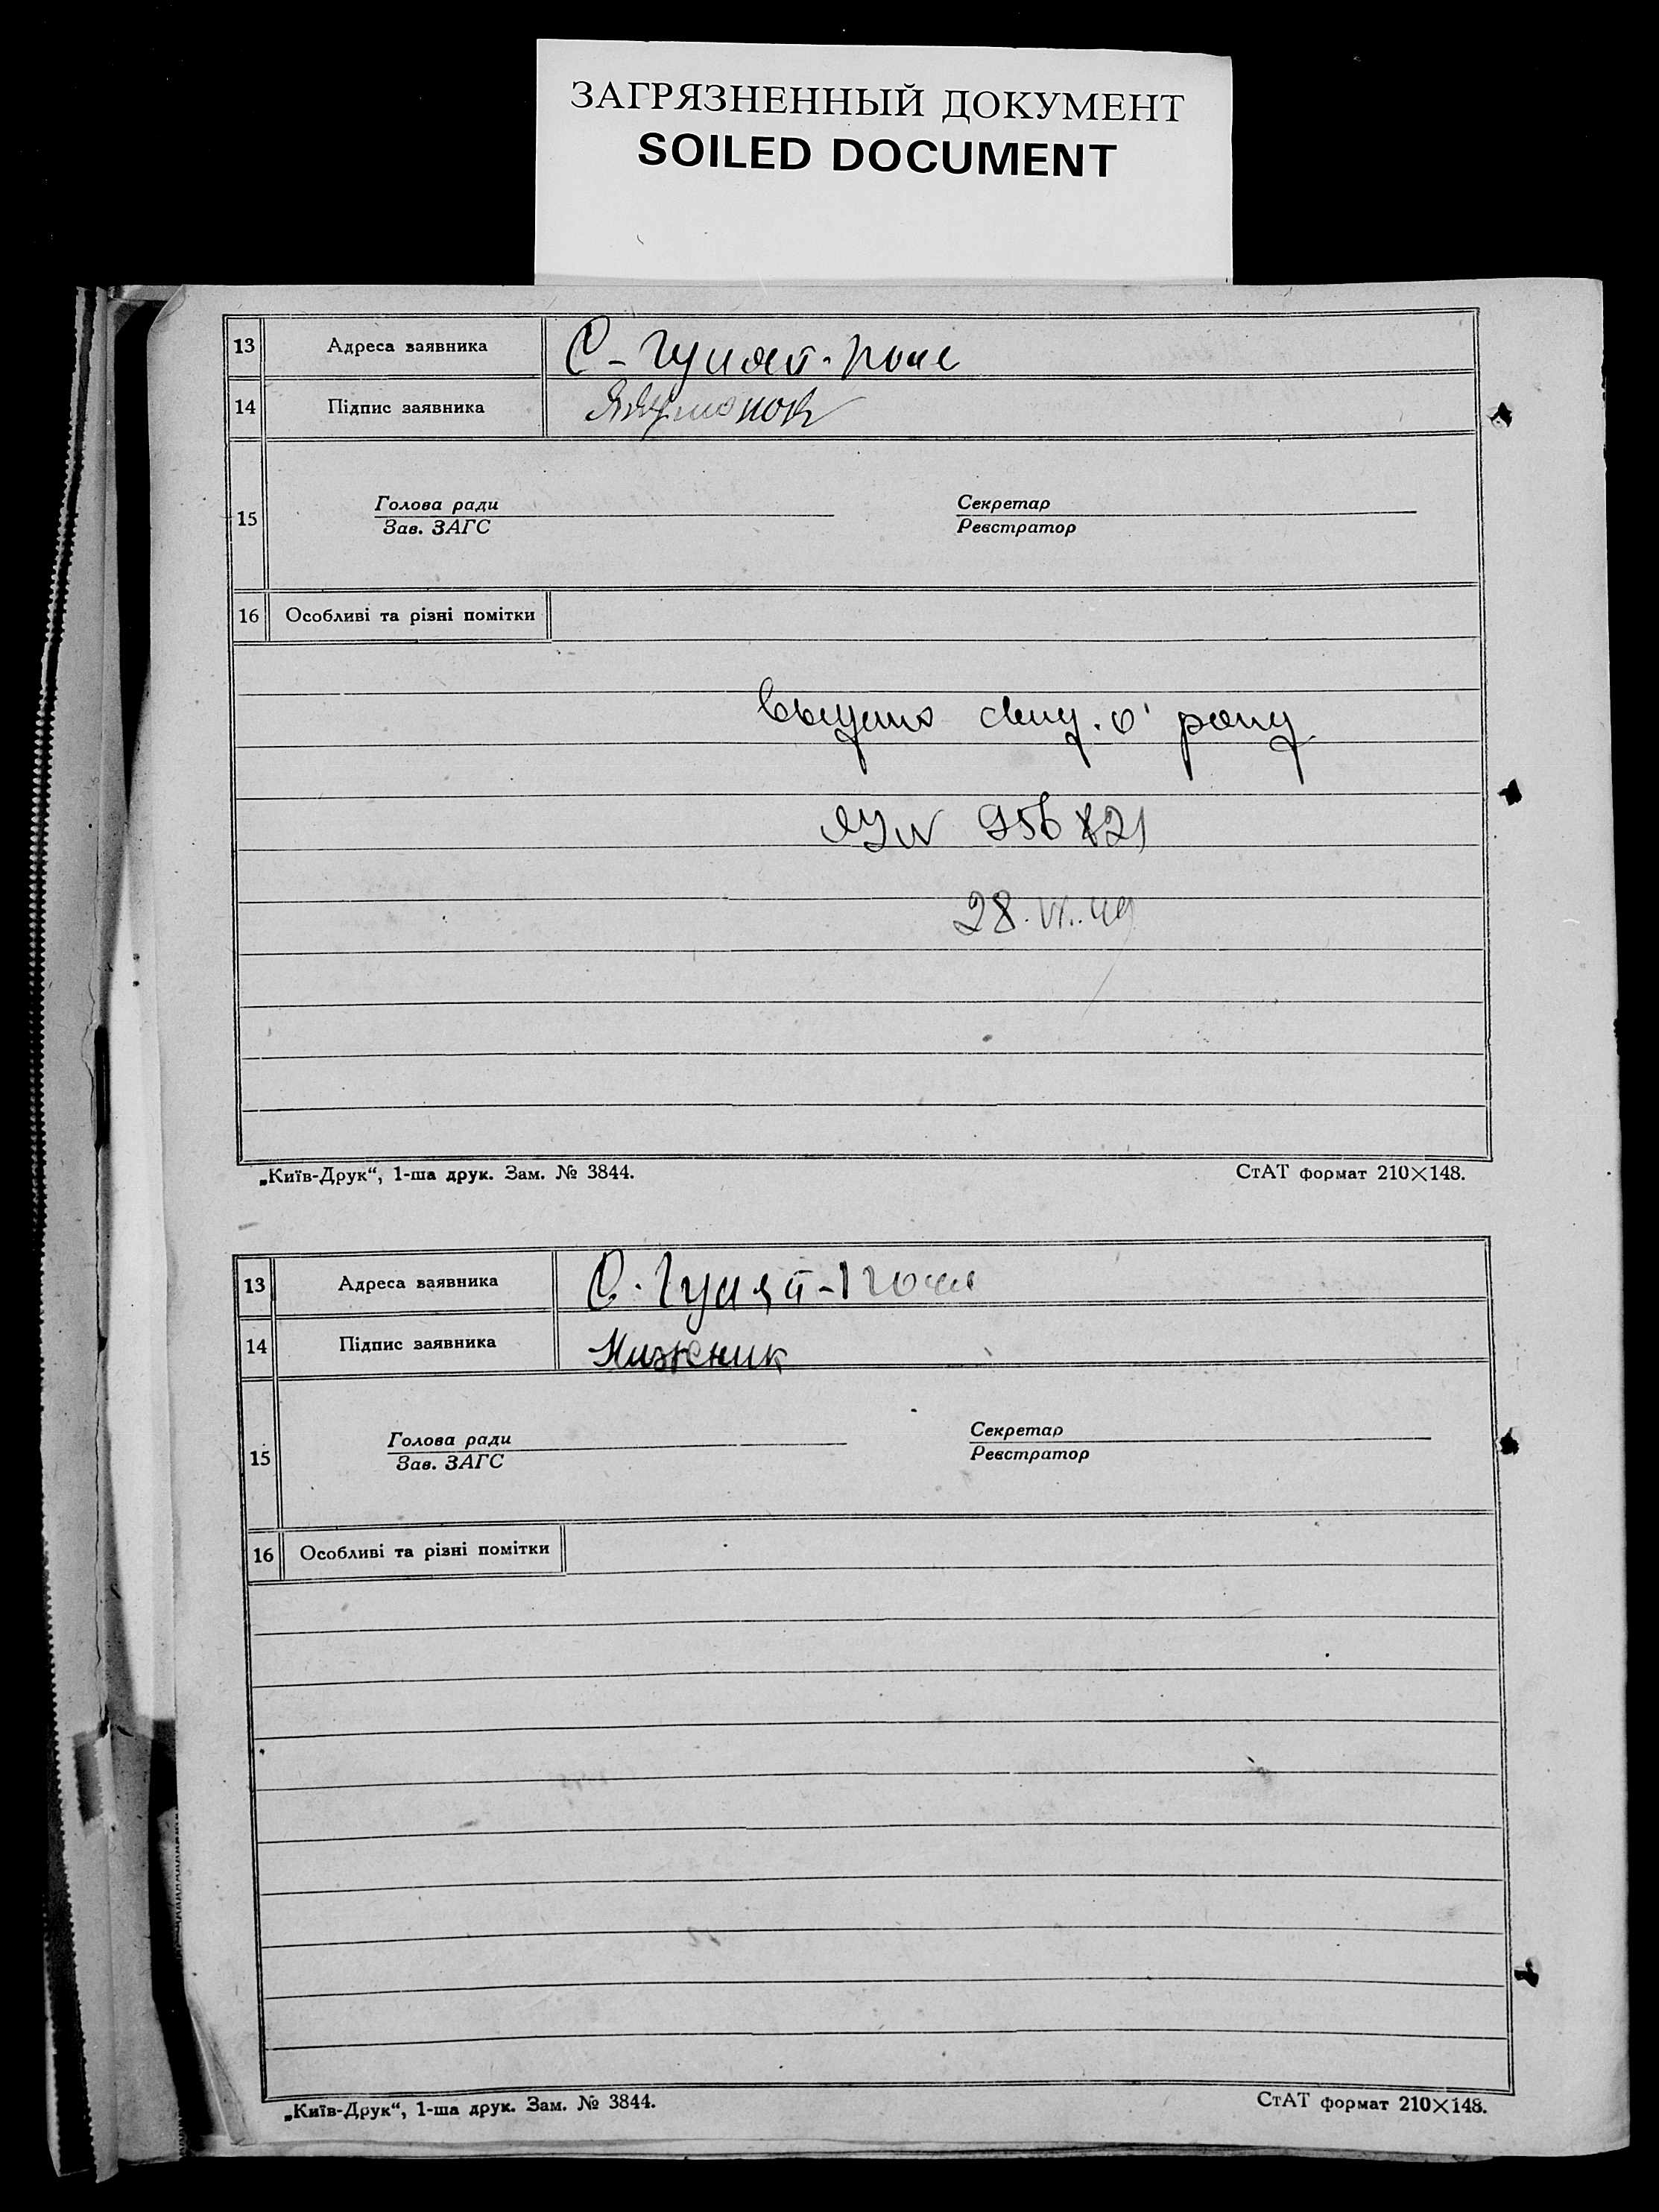 ЗАГРЯЗНЕННЫЙ ДОКУМЕНТ
SOILED DOCUMENT
13 Адреса заявника С-Гуляй-поле
14 Підпис заявника
15 Голова ради Секретар
Зав. ЗАГС Реєстратор
16 Особливі та різні помітки
выдано свид. о рожд
956821
28.VI.49
„Київ-Друк“, 1-ша друк. Зам. № 3844. СтАТ формат 210×148.
13 Адреса заявника С. Гуляй-поле
14 Підпис заявника Нижник
15 Голова ради Секретар
Зав. ЗАГС Реєстратор
16 Особливі та різні помітки
„Київ-Друк“, 1-ша друк. Зам. № 3844. СтАТ формат 210×148.